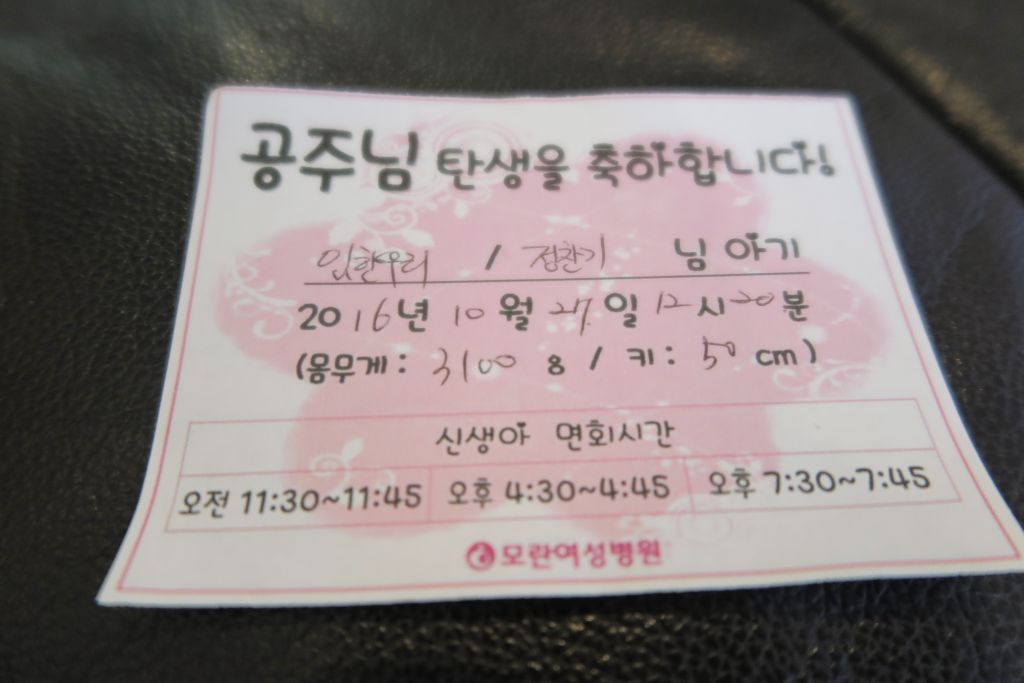 공주님 탄생을 축하합니다!
임한우리 / 정찬기 님 아기
2016년 10월 27일 12시 20분
(몸무게 : 3100 g / 키 : 50 cm)
신생아 면회시간
오전 11:30~11:45 오후 4:30~4:45 오후 7:30~7:45
모란여성병원